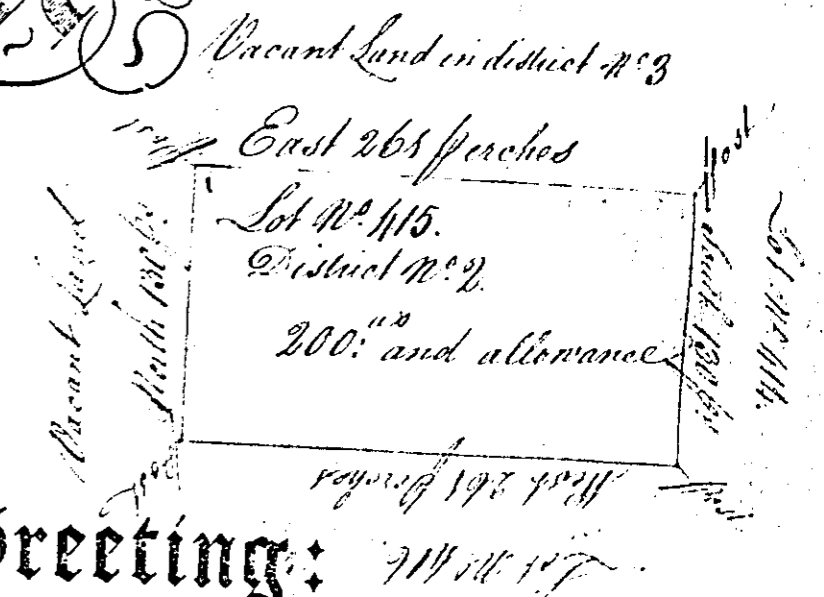 Vacant Land in district No 3
Post
East 261 perches
Post
Lot No. 415.
District No. 2.
200: as and allowance
Vacant Land
North 130 ps.
South 130 ps.
Lot No 414.
West 261 perches
Post
Greeting: